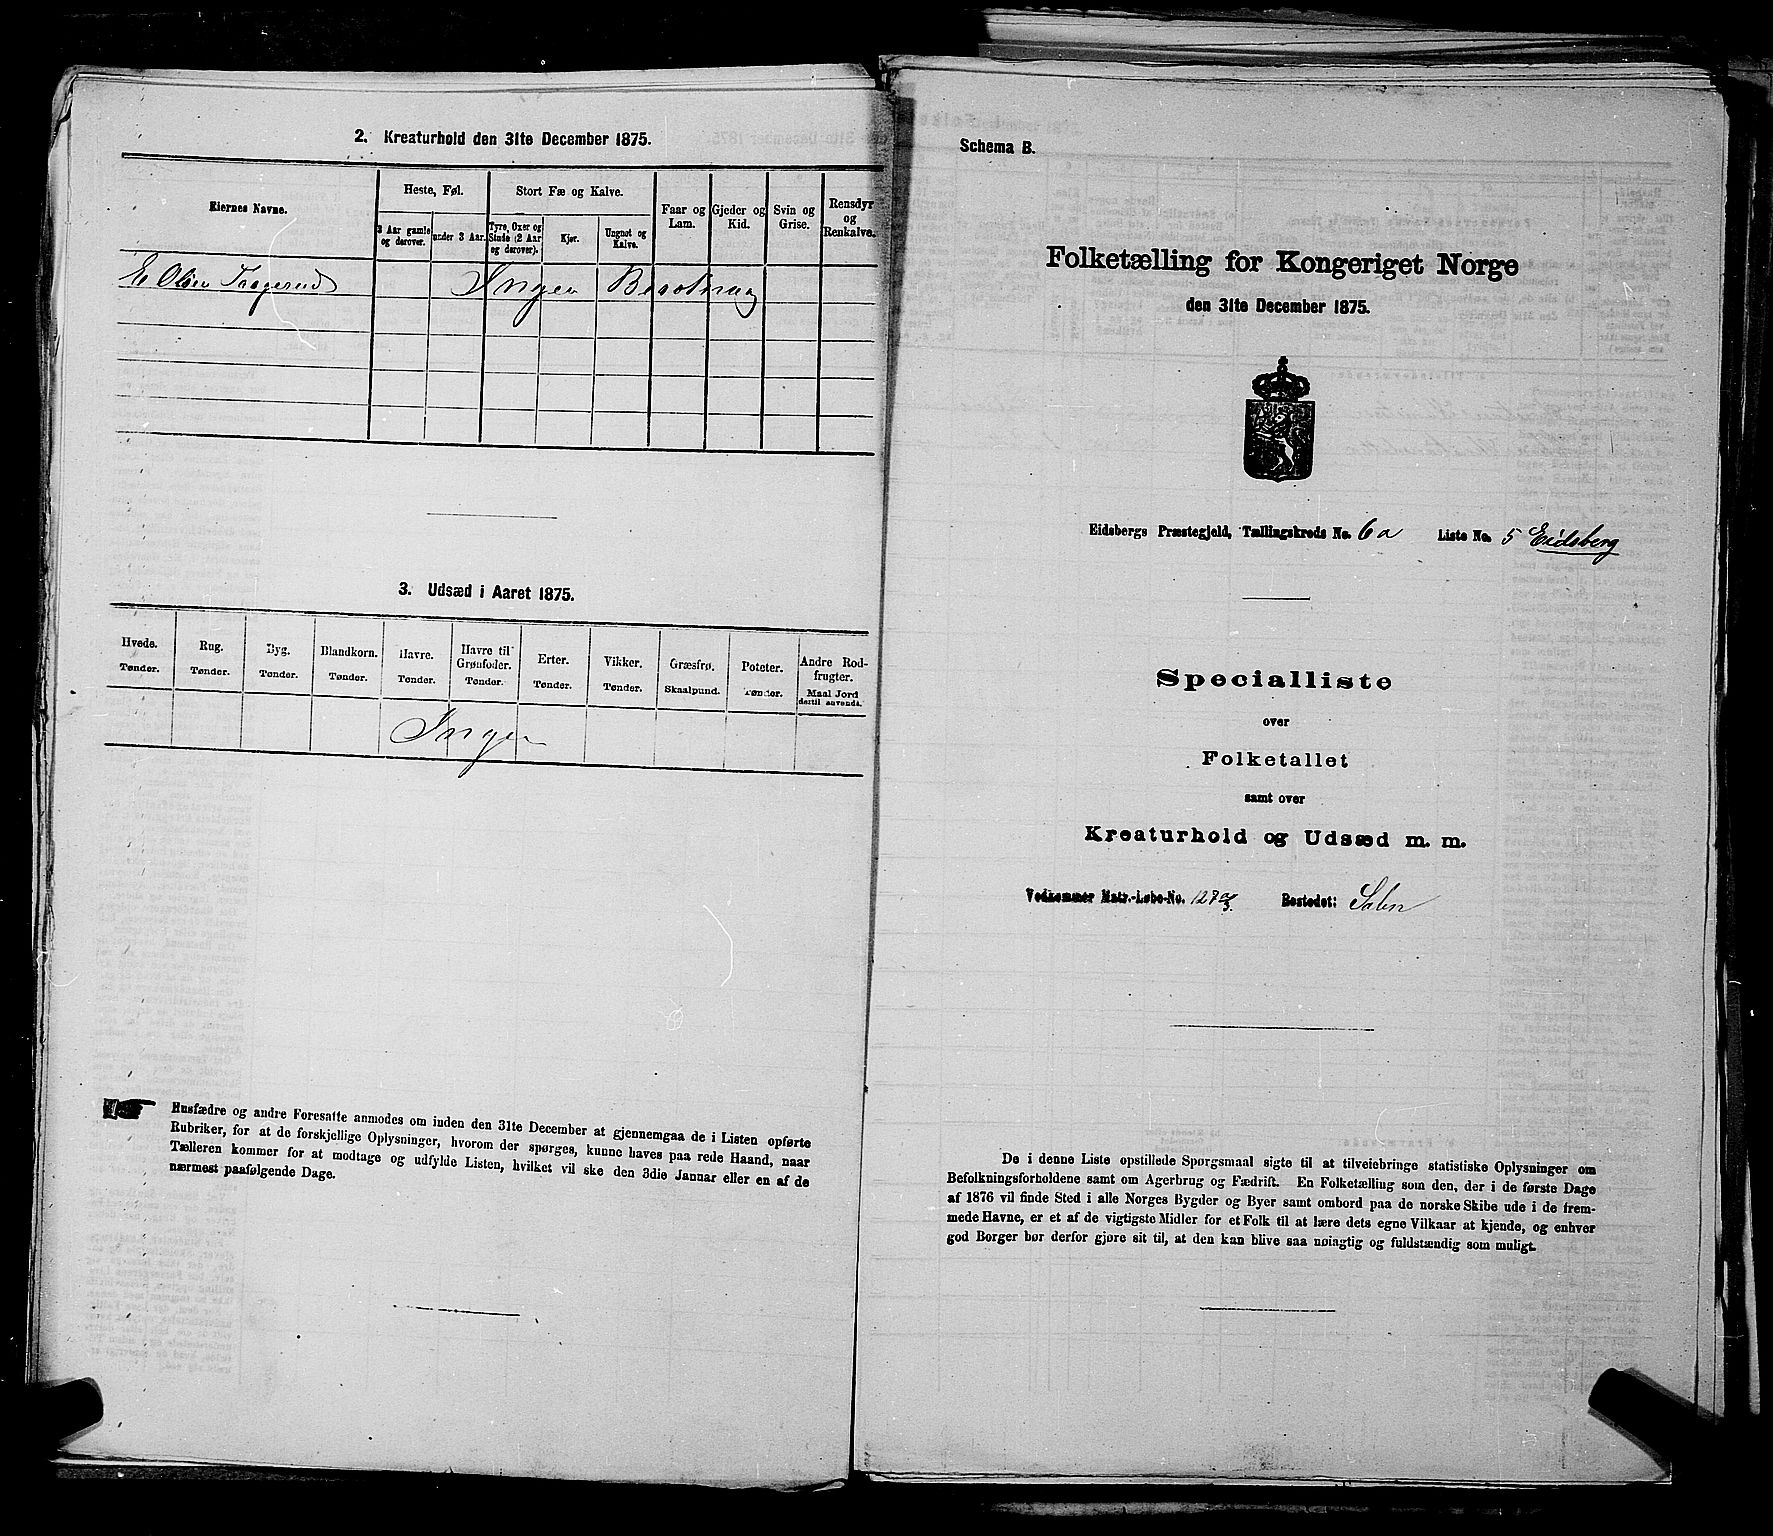 2. Kreaturhold den 31te December 1875.
Eiernes Navne.
Heste, Føl.
3 Aar gamle og derover.
under 3 Aar.
Stort Fæ og Kalve.
Tyre, Oxer og Stude (2 Aar og derover).
Kjør.
Ungnøt og Kalve.
Faar og Lam.
Gjeder og Kid.
Svin og Grise.
Rensdyr og Renkalve.
E Olsen Ingen
3. Udsæd i Aaret 1875.
Hvede. Tønder.
Rug. Tønder.
Byg. Tønder.
Blandkorn. Tønder.
Havre. Tønder.
Havre til Grønfoder. Tønder.
Erter. Tønder.
Vikker. Tønder.
Græsfrø. Skaalpund.
Poteter. Tønder.
Andre Rodfrugter. Maal Jord dertil anvendt.
Ingen
Husfædre og andre Foresatte anmodes om inden den 31te December at gjennemgaa de i Listen opførte
Rubriker, for at de forskjellige Oplysninger, hvorom der spørges, kunne haves paa rede Haand, naar
Tælleren kommer for at modtage og udfylde Listen, hvilket vil ske den 3die Januar eller en af de
nærmest paafølgende Dage.
Schema B.
Folketælling for Kongeriget Norge
den 31te December 1875.
Eidsbergs Præstegjeld, Tællingskreds No. 6a Liste No. 5 Eidsberg
Specialliste
over
Folketallet
samt over
Kreaturhold og Udsæd m. m.
Vedkommer Matr.-Løbe-No. 127a/3. Bostedet: Salen
De i denne Liste opstillede Spørgsmaal sigte til at tilveiebringe statistiske Oplysninger om
Befolkningsforholdene samt om Agerbrug og Fædrift. En Folketælling som den, der i de første Dage
af 1876 vil finde Sted i alle Norges Bygder og Byer samt ombord paa de norske Skibe ude i de frem-
mede Havne, er et af de vigtigste Midler for et Folk til at lære dets egne Vilkaar at kjende, og enhver
god Borger bør derfor gjøre sit til, at den kan blive saa nøiagtig og fuldstændig som muligt.